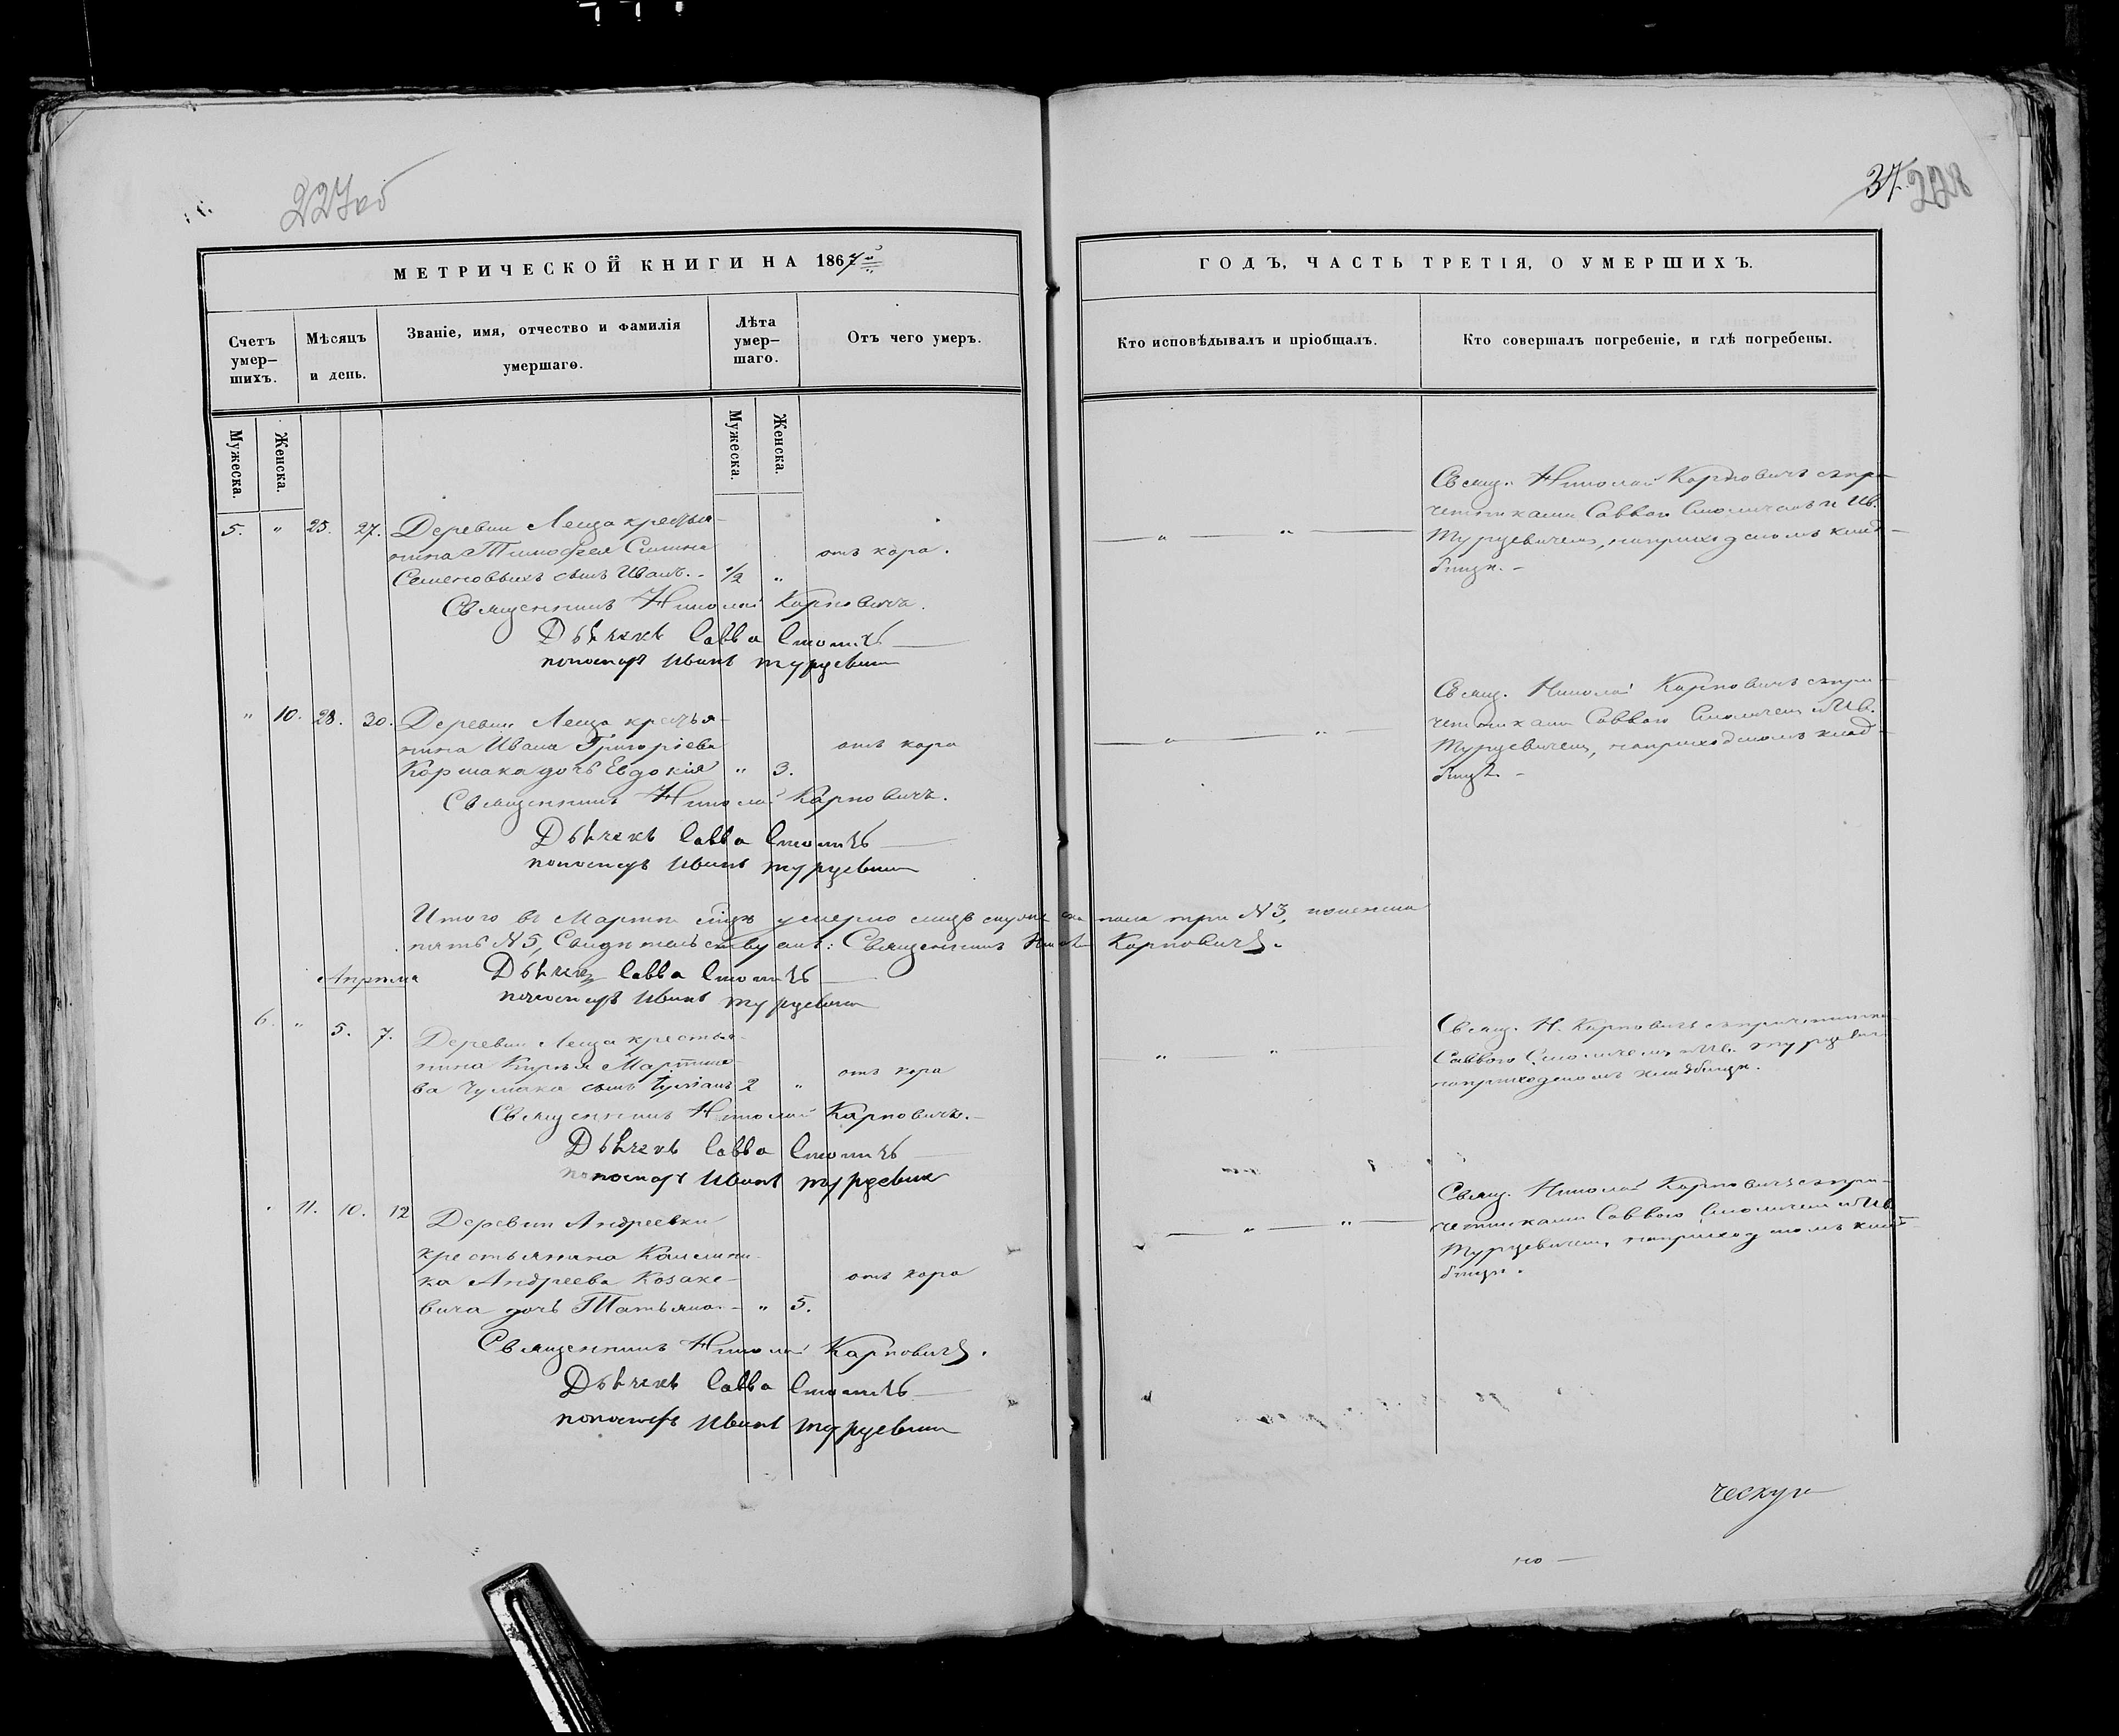 227об
37. 228
МЕТРИЧЕСКОЙ КНИГИ НА 1867
ГОДЪ, ЧАСТЬ ТРЕТІЯ, О УМЕРШИХЪ.
Счетъ умер-
шихъ.
Мѣсяцъ
и день.
Званіе, имя, отчество и фамилія
умершаго.
Лѣта
умер-
шаго.
Отъ чего умеръ.
Кто исповѣдывалъ и пріобщалъ.
Кто совершалъ погребеніе, и гдѣ погребены.
Мужеска.
Женска.
Мужеска.
Женска.
5. " 25. 27. Деревни Леща крестья-
нина Тимофея Силина
отъ кора.
Семеновыхъ сынъ Иванъ. - 1/2 "
Священникъ Николай Карповичъ.
Дьячекъ Савва Смоличъ
пономарь Иванъ Турцевичъ
— " — " —
Свящ. Николай Карповичъ съ при-
четниками Саввою Смоличемъ и Ив.
Турцевичемъ, на приходскомъ клад-
бищѣ. -
" 10. 28. 30. Деревни Леща крестья-
нина Ивана Григоріева
отъ кора
Коршака дочь Евдокія " 3.
Священникъ Николай Карповичъ.
Дьячекъ Савва Смоличъ
пономарь Иванъ Турцевичъ
— " — " —
Свящ. Николай Карповичъ съ при-
четниками Саввою Смоличемъ и Ив.
Турцевичемъ, на приходскомъ клад-
бищѣ. -
Итого въ Мартѣ мѣсяцѣ умерло лицъ мужеска пола три №3, женска
пять №5, Свидѣтельствуютъ: Священникъ Николай Карповичъ.
Дьячекъ Савва Смоличъ
пономарь Иванъ Турцевичъ
Апрѣля
6. " 5. 7. Деревни Леща крестья-
нина Кирья Мартино-
отъ кора
ва Чумака сынъ Іуліанъ 2 "
Священникъ Николай Карповичъ. -
Дьячекъ Савва Смоличъ
пономарь Иванъ Турцевичъ
" — "
Свящ. Н. Карповичъ съ причетниками
Саввою Смоличемъ и Ив. Турцевичемъ
на приходскомъ кладбищѣ.
" 11. 10. 12 Деревни Андреевки
крестьянина
ка Андреева Козаке-
отъ кора
вича дочь Татьяна. - " 5.
Священникъ Николай Карповичъ.
Дьячекъ Савва Смоличъ
пономарь Иванъ Турцевичъ
— " — " —
Свящ. Николай Карповичъ съ при-
четниками Саввою Смоличемъ и Ив.
Турцевичемъ, на приходскомъ клад-
бищѣ.